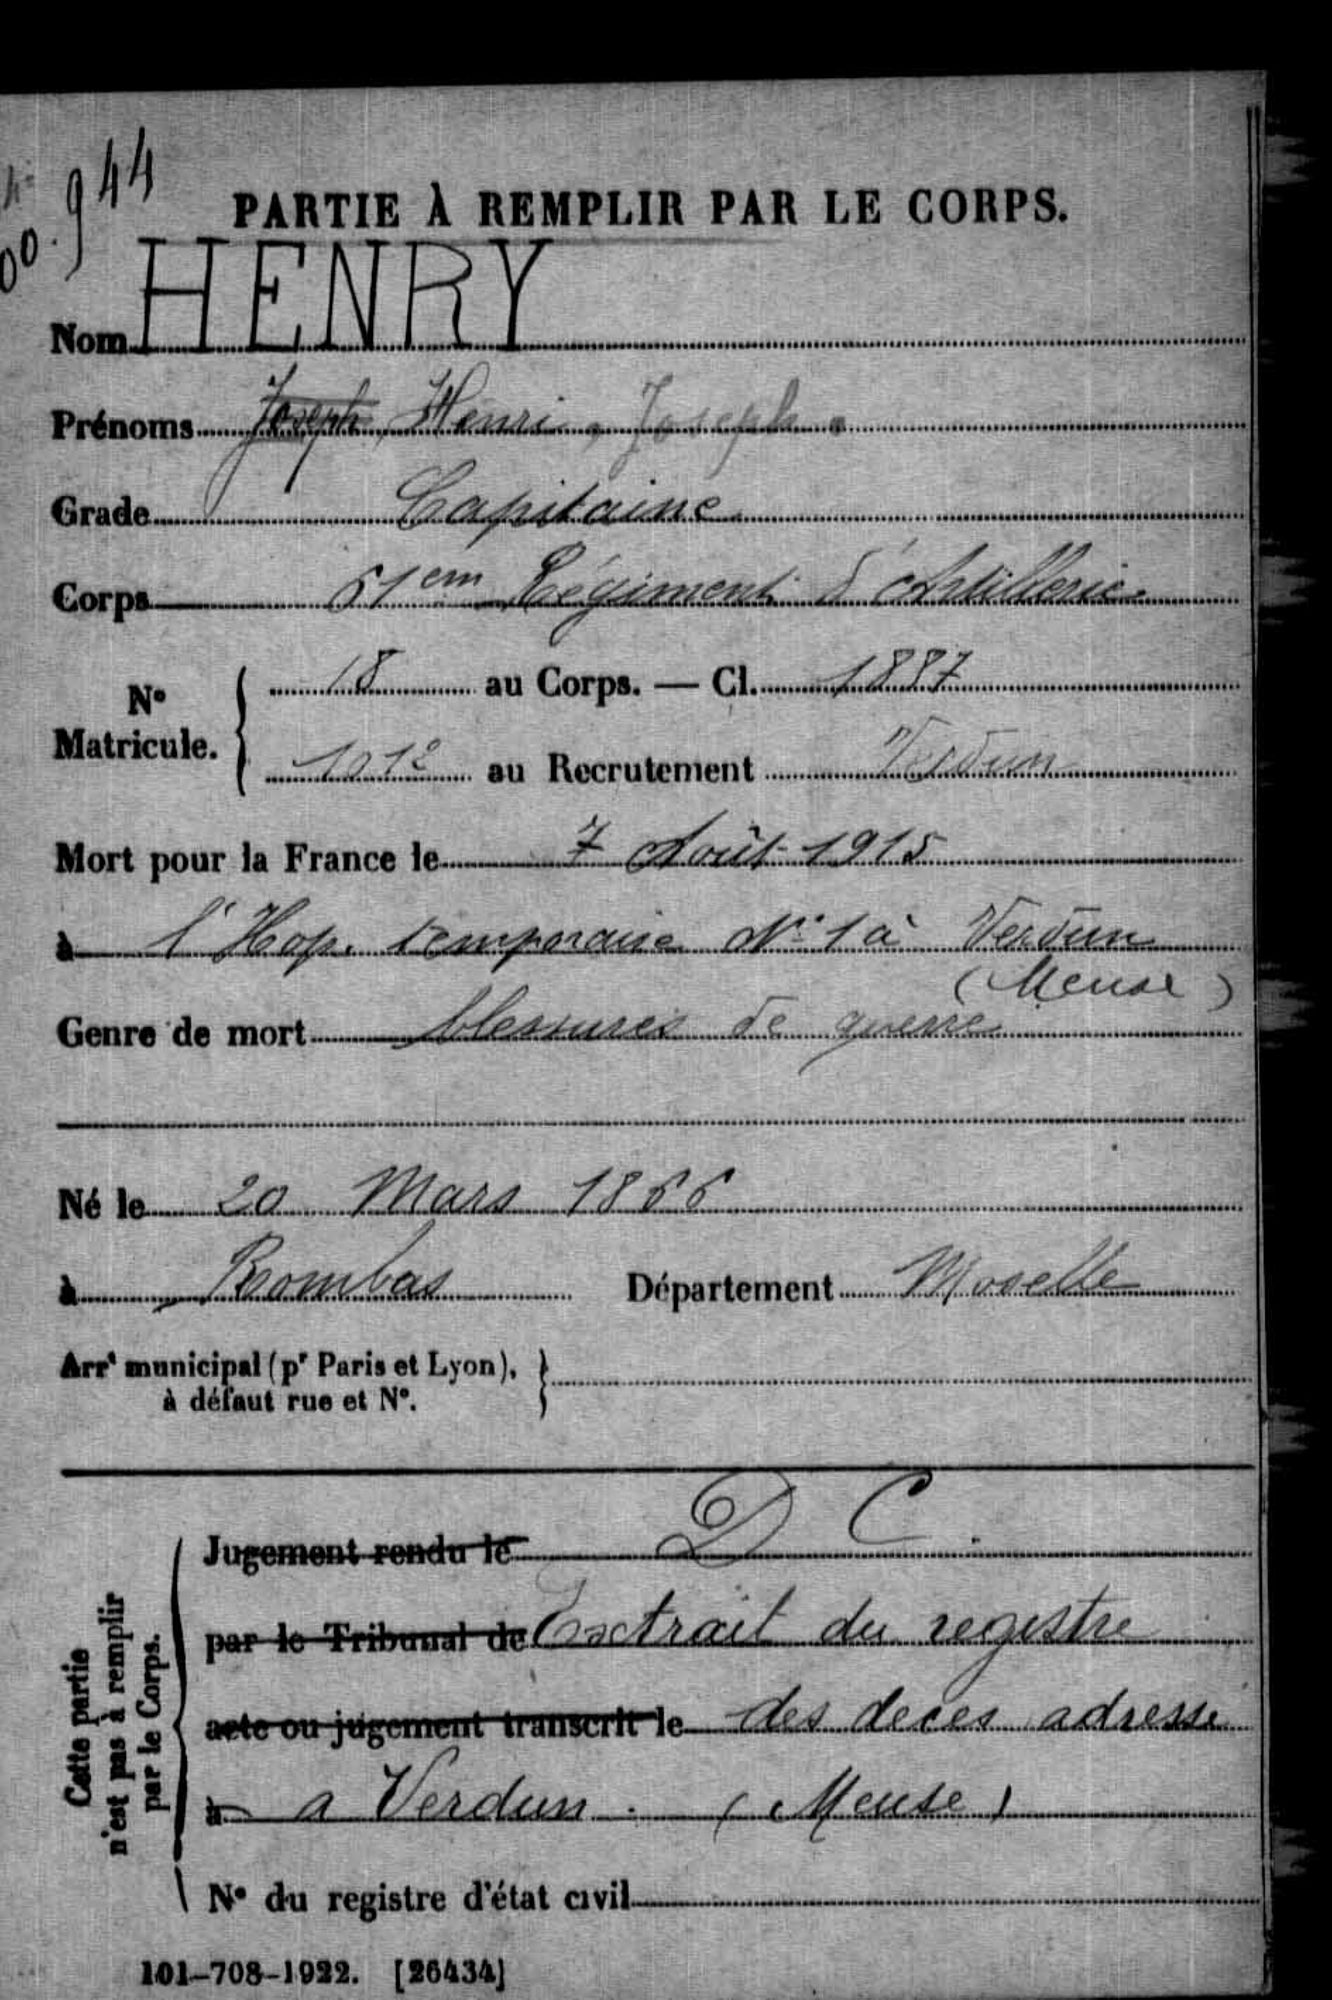 944
00.
PARTIE À REMPLIR PAR LE CORPS.
Nom HENRY
Prénoms Joseph, Henri, Joseph.
Grade Capitaine
Corps 61em Régiment d'Artillerie
N° Matricule. { 18 au Corps. — Cl. 1887
1012 au Recrutement Verdun
Mort pour la France le 7 Août 1915
à l'Hop. temporaire N° 1 à Verdun
(Meuse)
Genre de mort blessures de guerre
Né le 20 Mars 1866
à Rombas Département Moselle
Arrt municipal (pr Paris et Lyon), }
à défaut rue et N°.
Cette partie
n'est pas à remplir
par le Corps.
Jugement rendu le D C.
par le Tribunal de Extrait du registre
acte ou jugement transcrit le des deces adressé
à a Verdun. (Meuse)
N° du registre d'état civil
101-708-1922. [26434]